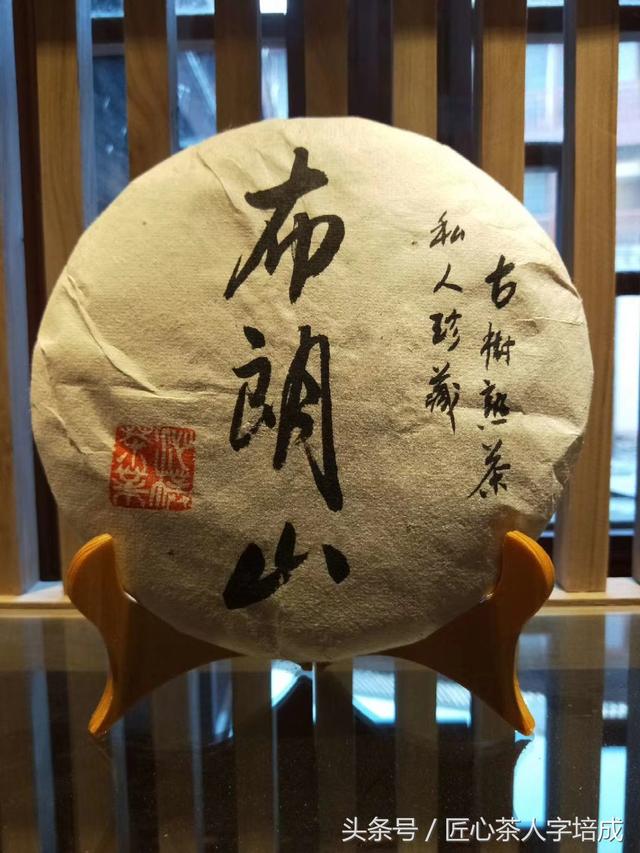 古樹熟茶
私人珍藏
布朗山
茶業
头条号／匠心茶人字培成